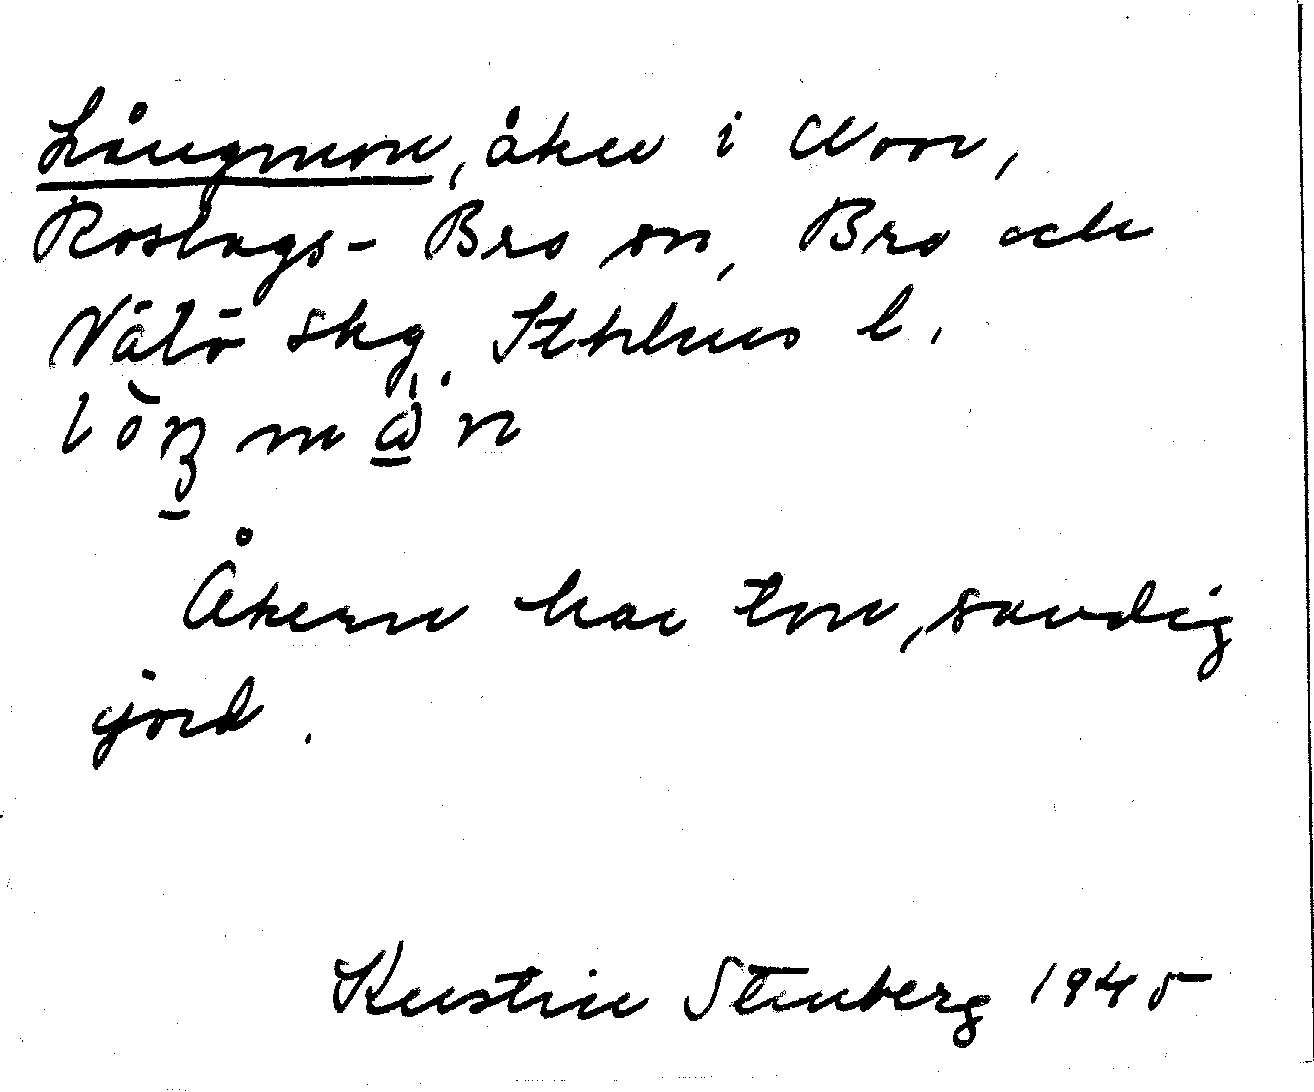 Långmon, åker i Noor,
Roslags-Bro sn, Bro och
Vätö skg, Sthlms l.
Åkern har torr, sandig
jord.
Kerstin Stenberg 1945